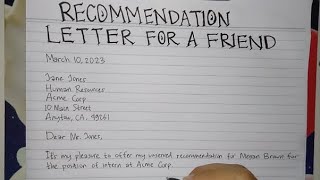 RECOMMENDATION
LETTER FOR A FRIEND
March 10, 2023
Jane Jones
Human Resources
Acme Corp
10 Main Street
Anytown, CA. 49261
Dear Mr. Jones,
It's my pleasure to offer my recommendation for Megan Brown for
the position of intern at Acme Corp.